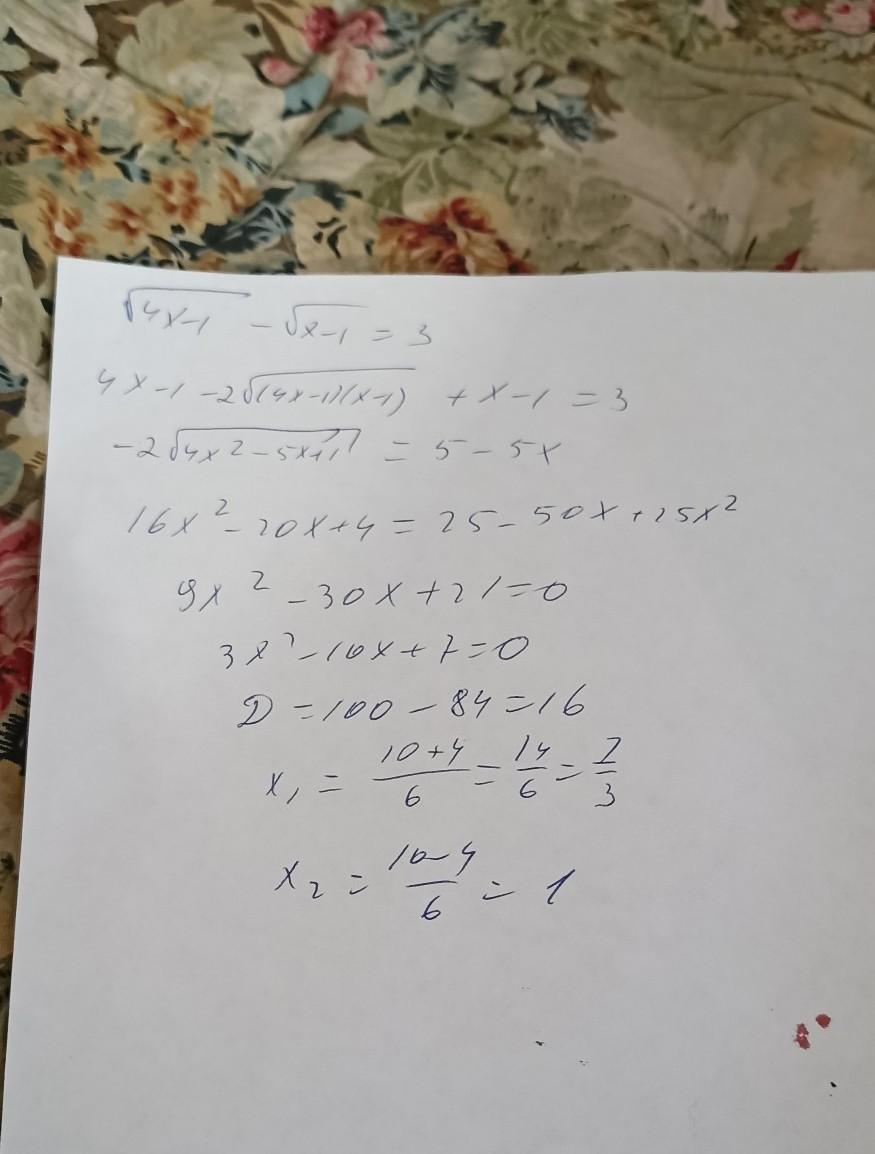 √4x-1 - √x-1 = 3
4x-1 -2√(4x-1)(x-1) + x-1 = 3
-2√4x²-5x+1 = 5-5x
16x²-20x+4 = 25-50x+25x²
9x²-30x+21=0
3x²-10x+7=0
D=100-84=16
x₁ = 10+4/6 = 14/6 = 7/3
x₂ = 10-4/6 = 1